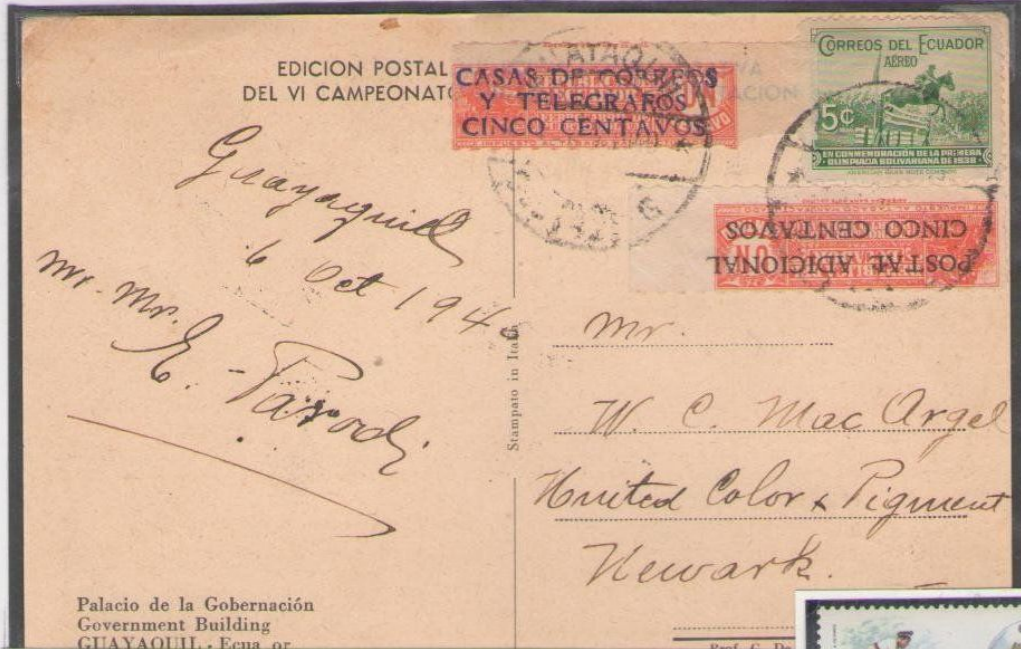 EDICION POSTAL
DEL VI CAMPEONATO
CASAS DE CORREOS
Y TELEGRAFOS
CINCO CENTAVOS
CORREOS DEL ECUADOR
AEREO
5¢
EN CONMEMORACIÓN DE LA PRIMERA
OLIMPIADA BOLIVARIANA DE 1938
AMERICAN BANK NOTE COMPANY
POSTAL ADICIONAL
CINCO CENTAVOS
Guayaquil
6 Oct 194
Mr. Mr.
E. Parodi
Stampato in Ital
Mr.
W. C. Mac Argel
United Color & Pigment
Newark.
Palacio de la Gobernación
Government Building
GUAYAQUIL - Ecua or
Prof. G. De